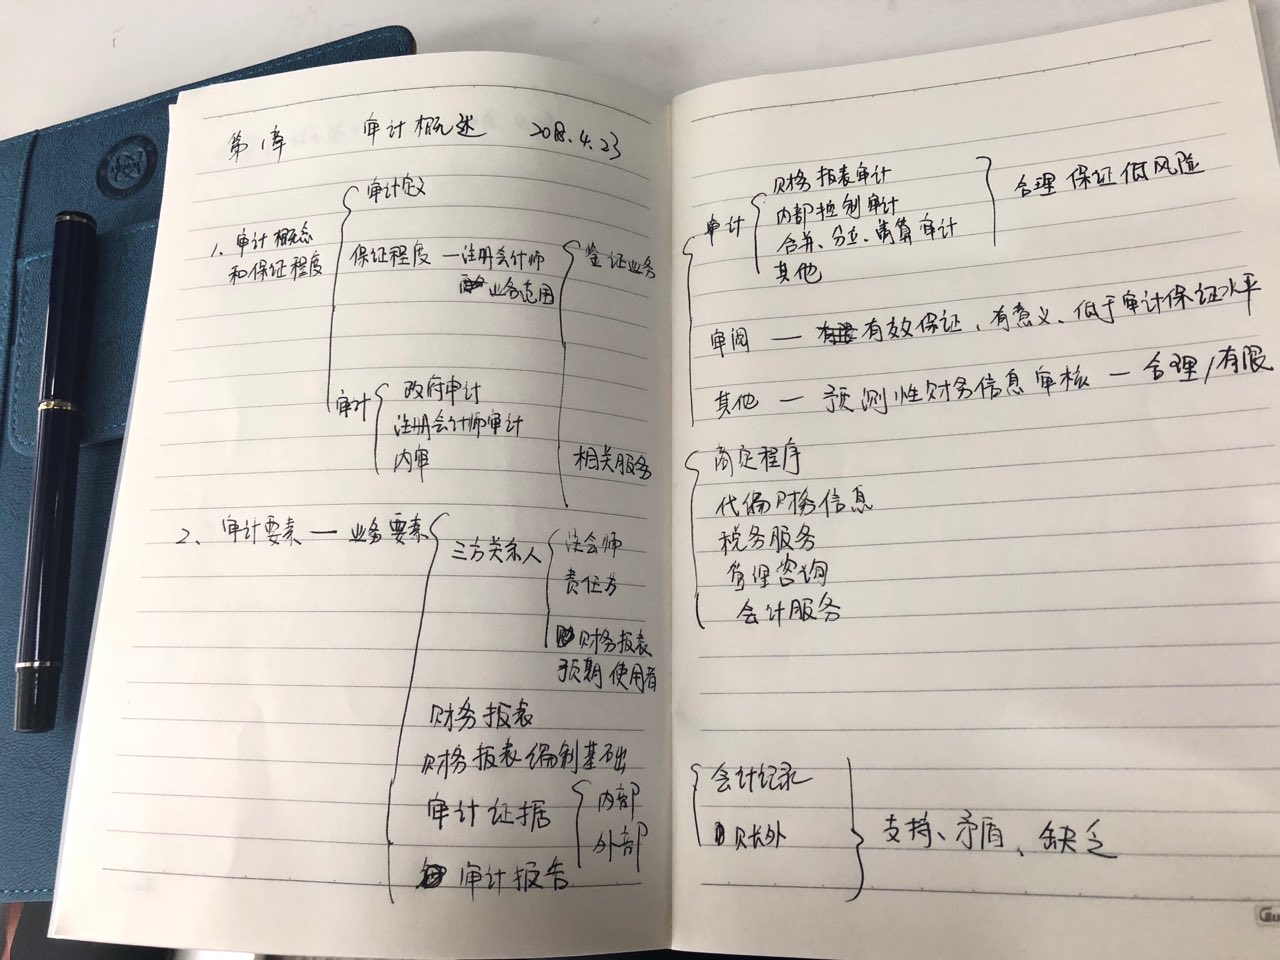 第1章 审计概述 2018.4.23
1、审计概念
和保证程度
审计定义
保证程度 — 注册会计师
业务范围
鉴证业务
相关服务
审计
政府审计
注册会计师审计
内审
2、审计要素 — 业务要素
三方关系人
注会师
责任方
财务报表
预期使用者
财务报表
财务报表编制基础
审计证据
内部
外部
审计报告
审计
财务报表审计
内部控制审计
合并、分立、清算审计
其他
合理保证低风险
审阅 — 有效保证、有意义、低于审计保证水平
其他 — 预测性财务信息审核 — 合理/有限
商定程序
代编财务信息
税务服务
管理咨询
会计服务
会计记录
账外
支持、矛盾、缺乏